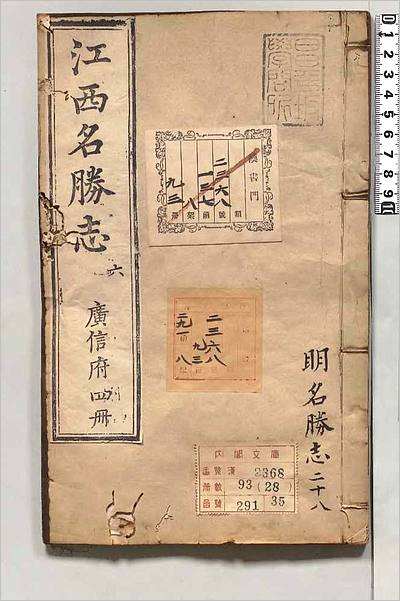 江西名勝志 六
廣信府 四册
明名勝志二十八
漢書門
二三六八
一三七
八
九三
類 號 函 架 冊
二三六八
九三
二九一
八
内閣文庫
番號 漢 2368
冊數 93 (28)
函號 291 35
0 1 2 3 4 5 6 7 8 9 10